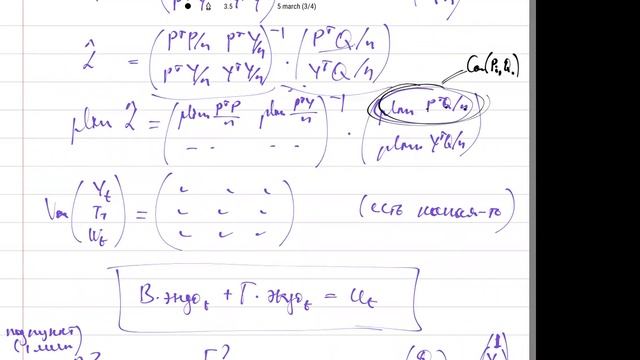 3.5 5 march (3/4)
L̂ = (PᵀP/n PᵀY/n PᵀY/n YᵀY/n)⁻¹ · (PᵀQ/n YᵀQ/n)
Cov(Pᵢ, Qᵢ)
plim L̂ = (plim PᵀP/n plim PᵀY/n -- --)⁻¹ · (plim PᵀQ/n plim YᵀQ/n)
Var(Yₜ Tₜ Wₜ) = ( ) (есть какая-то)
B·эндоₜ + Γ·экзоₜ = uₜ
подпункт
(1 мин)
Γ?